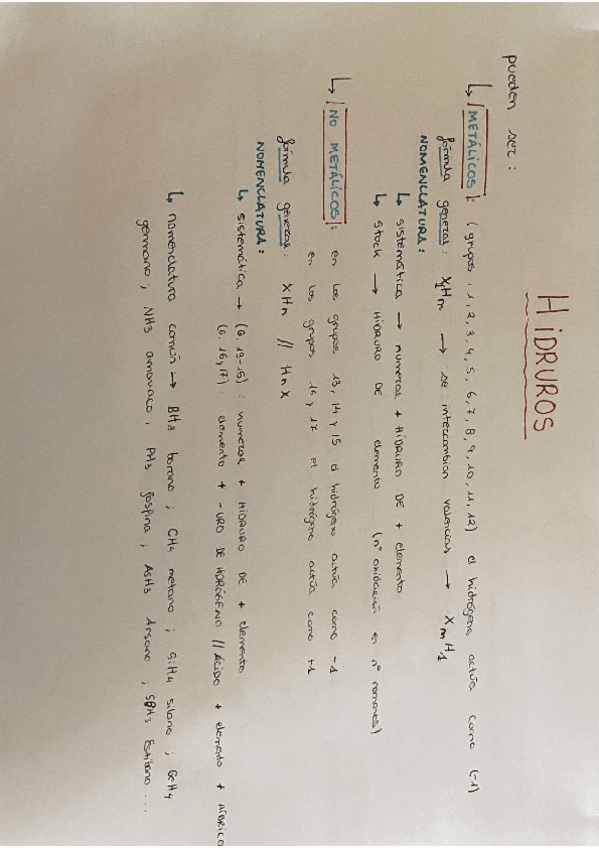 HiDRUROS
pueden ser:
↳ [METÁLICOS]: (grupos, 1, 2, 3, 4, 5, 6, 7, 8, 9, 10, 11, 12) el hidrógeno actúa como (-1)
fórmula general: X₁Hm → se intercambian valencias → XmH₁
NOMENCLATURA:
↳ sistemática → numeral + HIDRURO DE + elemento
↳ stock → HIDRURO DE elemento (nº oxidación en nº romanos)
↳ [NO METÁLICOS]: en los grupos 13, 14 y 15 el hidrógeno actúa como -1
en los grupos 16 y 17 el hidrógeno actúa como +1
fórmula general: XHn // HnX
NOMENCLATURA:
↳ sistemática → (G. 13-15): numeral + HIDRURO DE + elemento
(G. 16 y 17): elemento + -URO DE HIDRÓGENO // ÁCIDO + elemento + HÍDRICO
↳ nomenclatura común → BH3 borano; CH4 metano; SiH4 silano; GeH4
germano; NH3 amoniaco; PH3 fosfina; AsH3 Arsano; SbH3 Estibano...